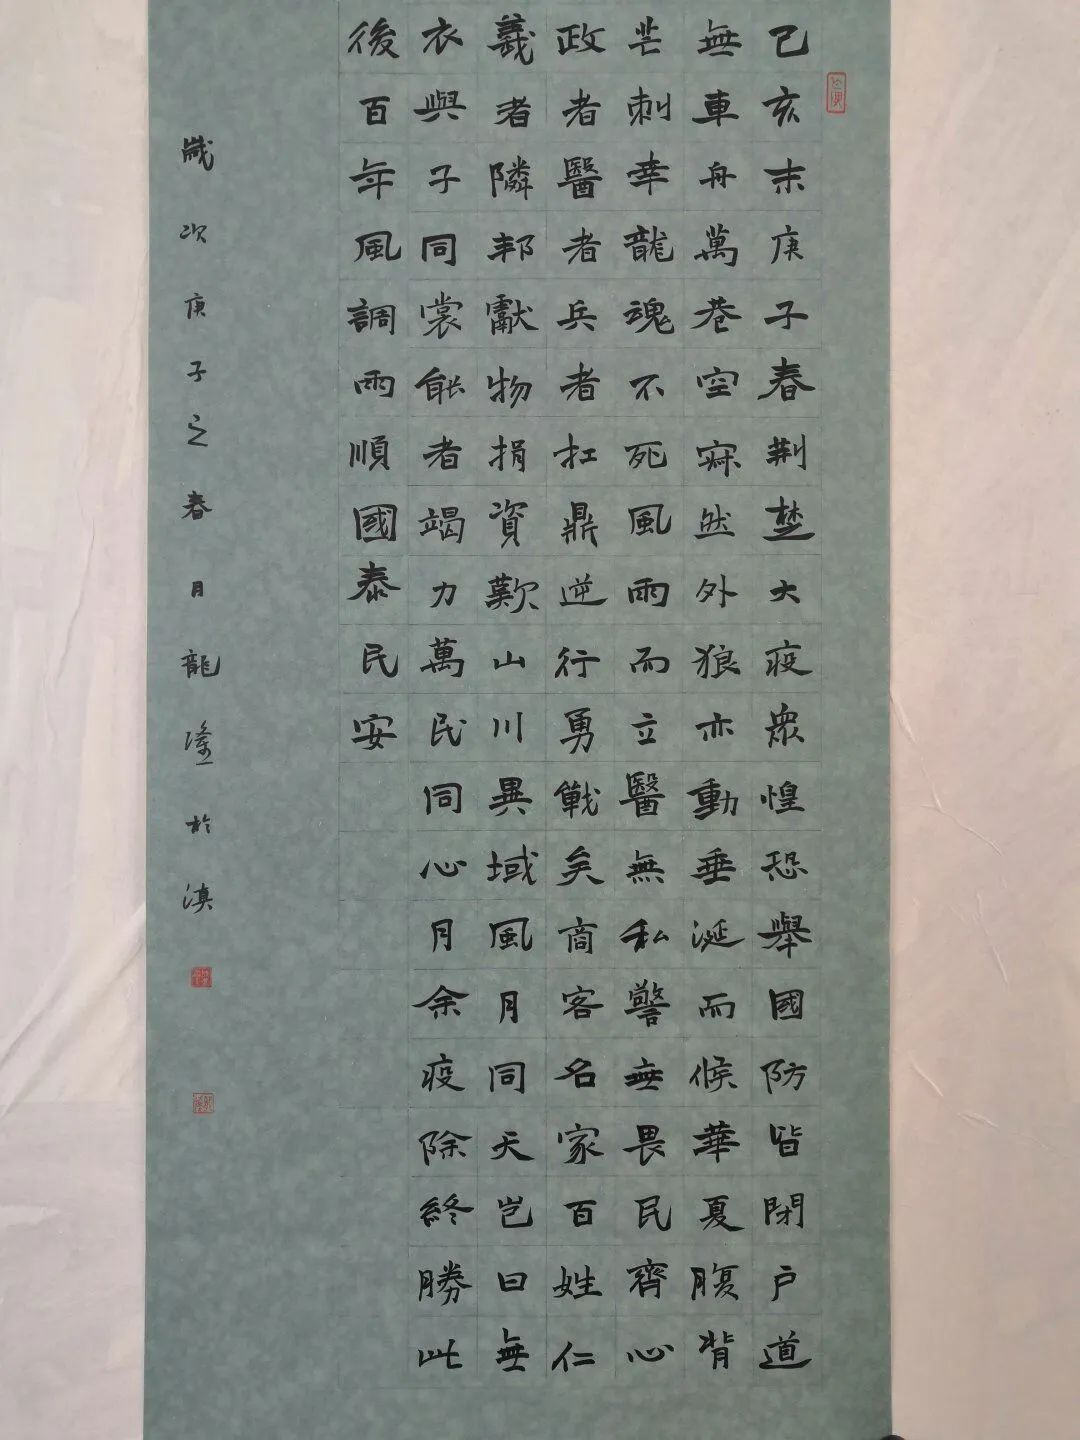 己亥末庚子春荆楚大疫衆惶恐舉國防皆閉户道
無車舟萬巷空寂然外狼亦動垂涎而候華夏腹背
芒刺幸龍魂不死風雨而立醫無私警無畏民齊心
政者醫者兵者扛鼎逆行勇戰矣商客名家百姓仁
義者隣邦獻物捐資歎山川異域風月同天岂曰無
衣與子同裳能者竭力萬民同心月余疫除終勝此
後百年風調雨順國泰民安
歲次庚子之春月龍隆於滇